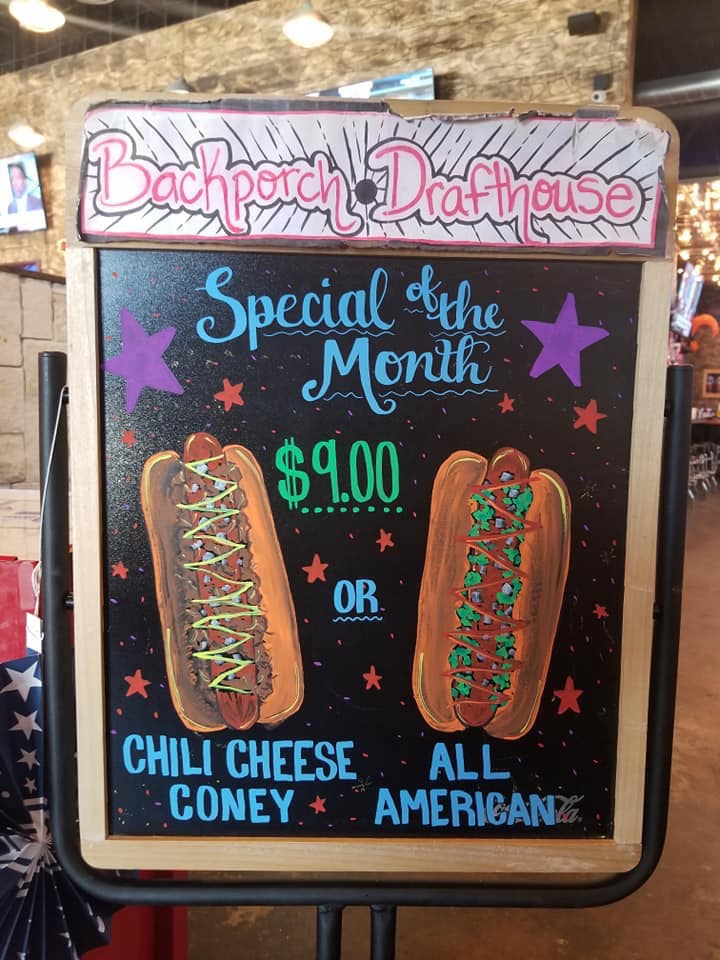 Backporch Drafthouse
Special of the
Month
$9.00
OR
CHILI CHEESE
CONEY
ALL
AMERICAN